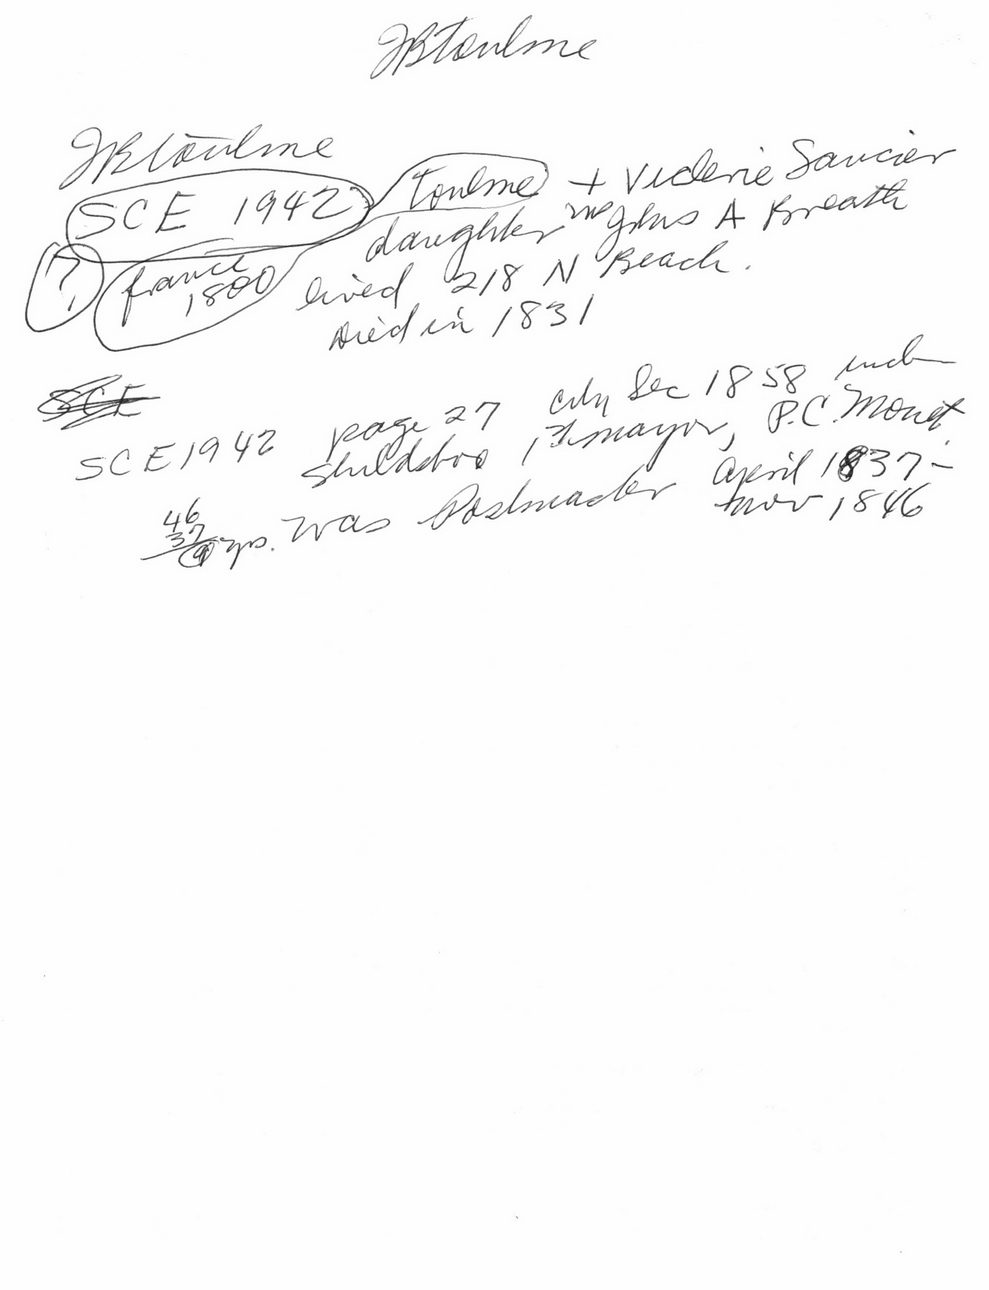 JBToulme
JBToulme
SCE 1942 Toulme + Victorie Saucier
daughter me John A Breath
? france 1800 lived 218 N Beach.
Died in 1831
SCE
SCE 1942 page 27 city Sec 1858 inch
Shieldsboro 1st mayor, P.C. Monet.
46
37
9 yrs. Was Postmaster April 1837-
Nov 1846